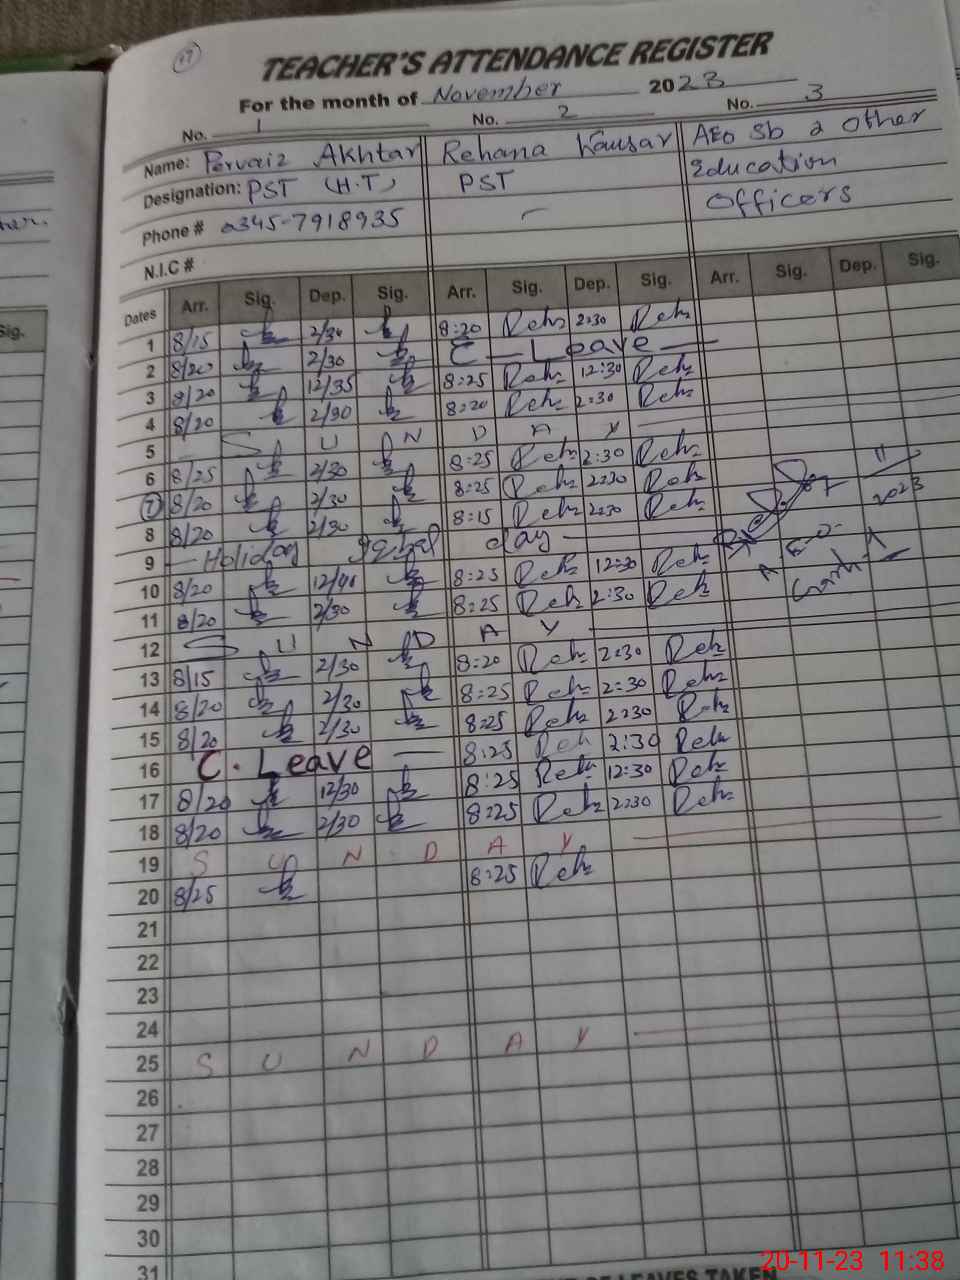 17
TEACHER'S ATTENDANCE REGISTER
For the month of November 2023
No. 1 No. 2 No. 3
Name: Pervaiz Akhtar Rehana Kausar AEO Sb & Other
Designation: PST (H.T) PST Education
Phone # 0345-7918935 Officers
N.I.C #
Dates Arr. Sig. Dep. Sig. Arr. Sig. Dep. Sig. Arr. Sig. Dep. Sig.
1 8/15 2/30 8:20 Reh 2:30 Reh
2 8/20 2/30 C - Leave
3 8/20 12/35 8:25 Reh 12:30 Reh
4 8/20 2/30 8:20 Reh 2:30 Reh
5 S U N D A Y
6 8/25 2/30 8:25 Reh 2:30 Reh
7 8/20 2/30 8:25 Reh 2:30 Reh
8 8/20 2/30 8:15 Reh 2:30 Reh
9 Holiday Iqbal day
10 8/20 12/40 8:25 Reh 12:30 Reh
11 8/20 2/30 8:25 Reh 2:30 Reh
12 S U N D A Y
13 8/15 2/30 8:20 Reh 2:30 Reh
14 8/20 2/30 8:25 Reh 2:30 Reh
15 8/20 2/30 8:25 Reh 2:30 Reh
16 C. Leave 8:25 Reh 2:30 Reh
17 8/20 12/30 8:25 Reh 12:30 Reh
18 8/20 2/30 8:25 Reh 2:30 Reh
19 S U N D A Y
20 8/25 8:25 Reh
21
22
23
24
25 S U N D A Y
26
27
28
29
30
31
7 11
2023
A.E.O
OF LEAVES TAKEN
20-11-23 11:38